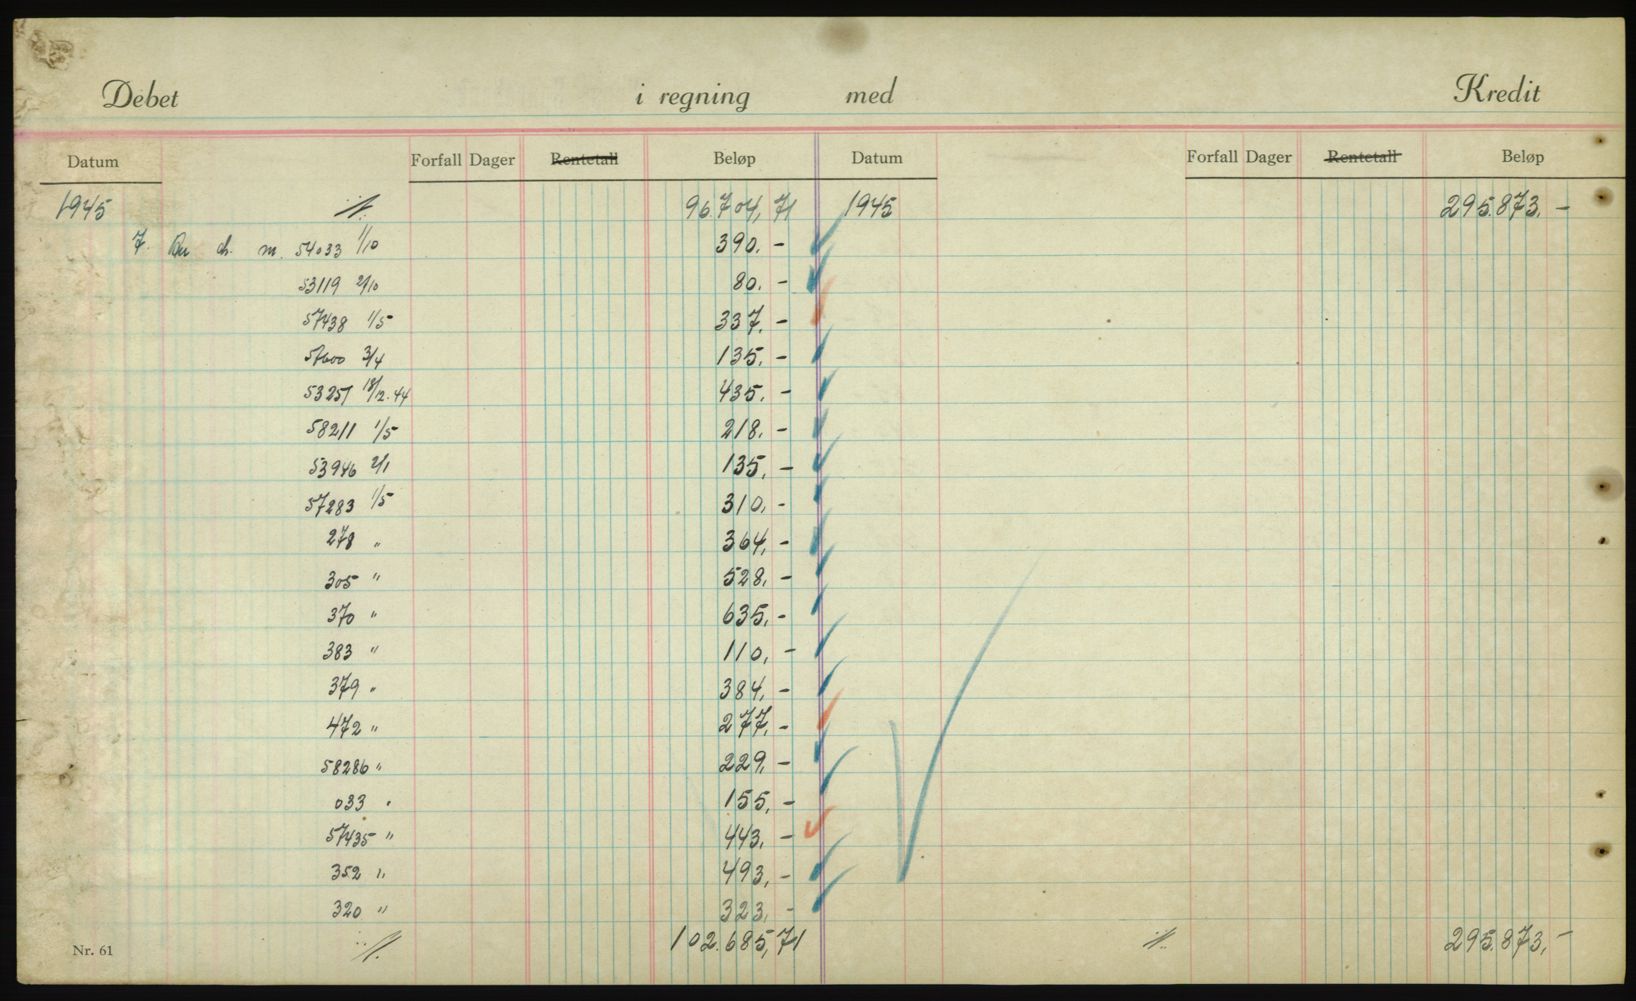 Debet i regning med Kredit
Datum Forfall Dager Rentetall Beløp Datum Forfall Dager Rentetall Beløp
1945 96.704,71 1945 295.873,-
7. m. 54033 1/10 390,-
53119 2/10 80,-
57438 1/5 337,-
57600 3/4 135,-
53257 18/12.44 435,-
58211 1/5 218,-
53946 2/1 135,-
57283 1/5 310,-
278 " 364,-
305 " 528,-
370 " 635,-
383 " 110,-
379 " 384,-
472 " 277,-
58286 " 229,-
033 " 155,-
57435 " 443,-
352 " 493,-
320 " 323,-
Nr. 61 102.685,71 295.873,-